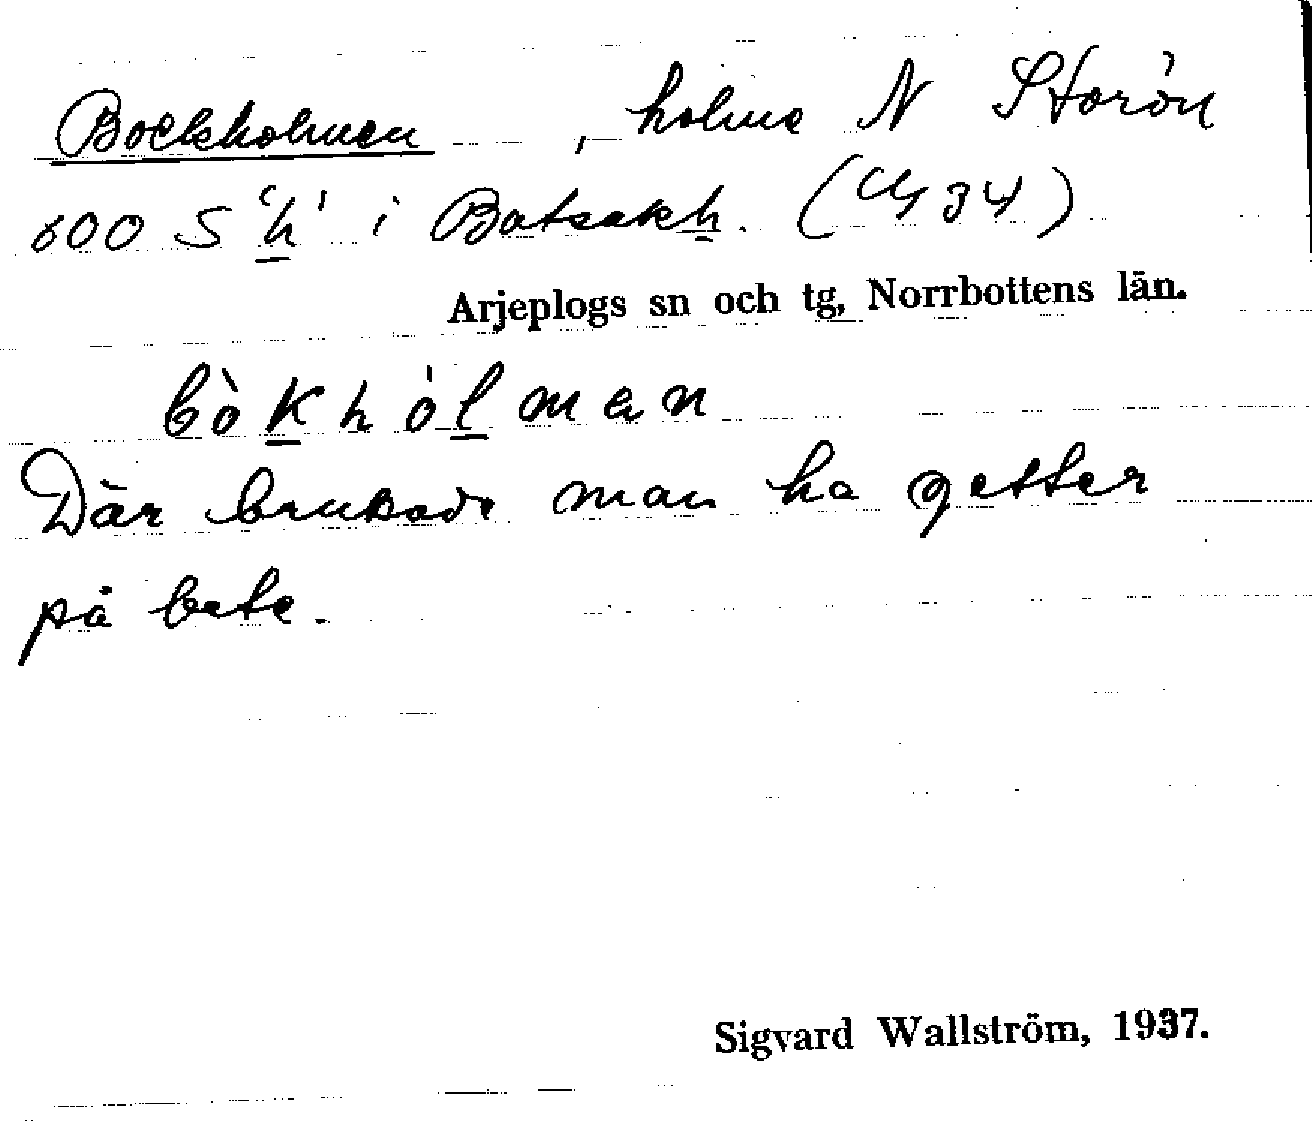 Bockholmen, holme N Storön
600 S 'h' i Batsakh. (U 34)
Arjeplogs sn och tg, Norrbottens län.
bòkhólman
Där brukade man ha getter
på bete.
Sigvard Wallström, 1937.